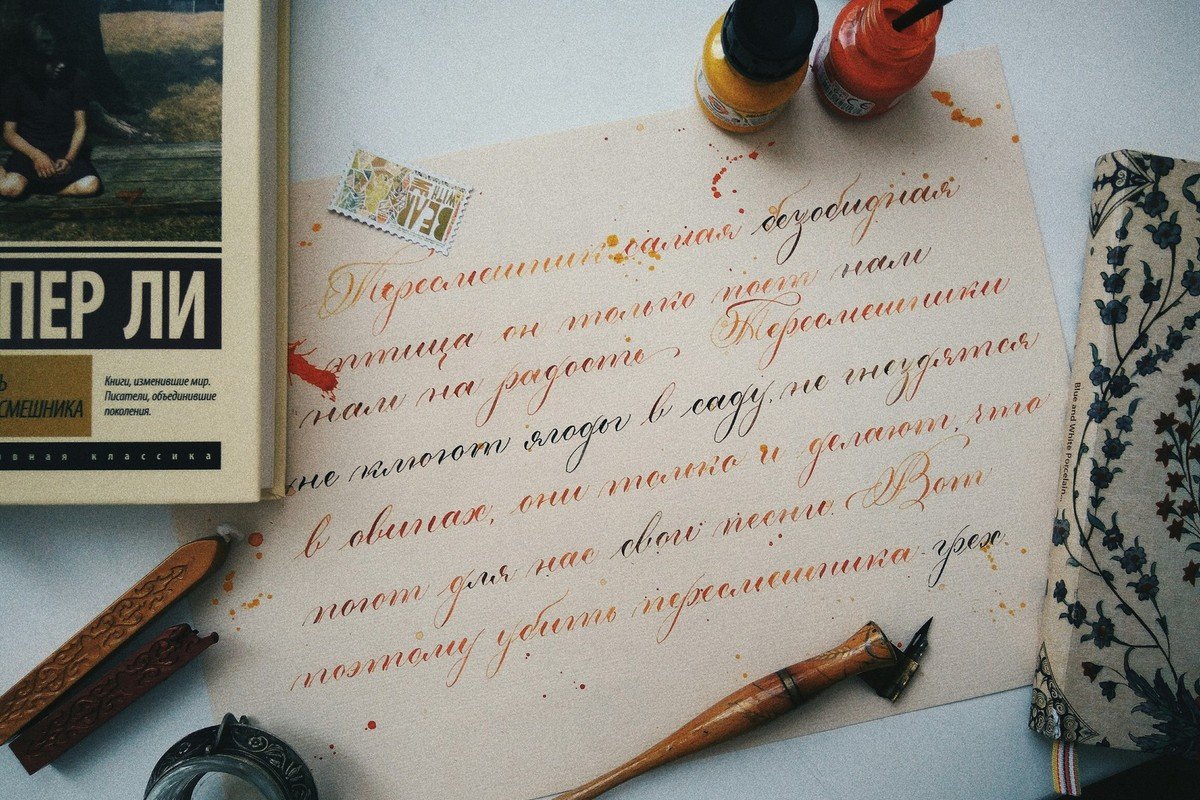 ПЕР ЛИ
Ь
СМЕШНИКА
Книги, изменившие мир.
Писатели, объединившие
поколения.
вная классика
BEAR
WITH
ME
Пересмешник самая безобидная
птица он только поет нам
нам на радость. Пересмешники
не клюют ягоды в саду, не гнездятся
в овинах, они только и делают, что
поют для нас свои песни. Вот
поэтому убить пересмешника грех.
Blue and White Porcelain...
CE